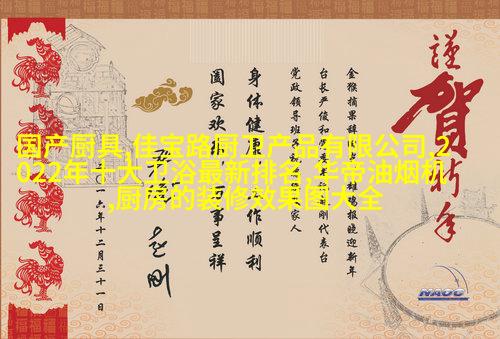 国产厨具,佳宝路厨卫产品有限公司,2
022年十大卫浴最新排名,华帝油烟机
,厨房的装修效果图大全
謹賀新年
金猴摘果辞旧 雄鸡报晓迎新年
台长严俊和 刚代表台
党政领导班子 家人
身体健康 工作顺利
阖家欢 万事呈祥
一六年十二月三十一日
NAOC